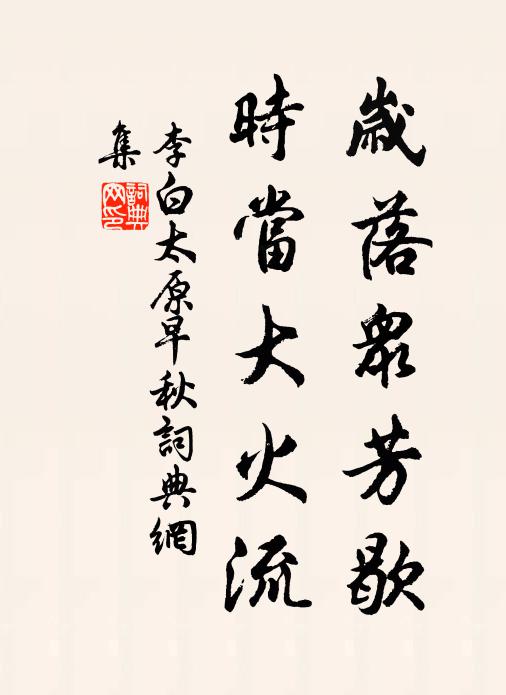 歲落衆芳歇
時當大火流
李白太原早秋詞典網
集
詞典
网印